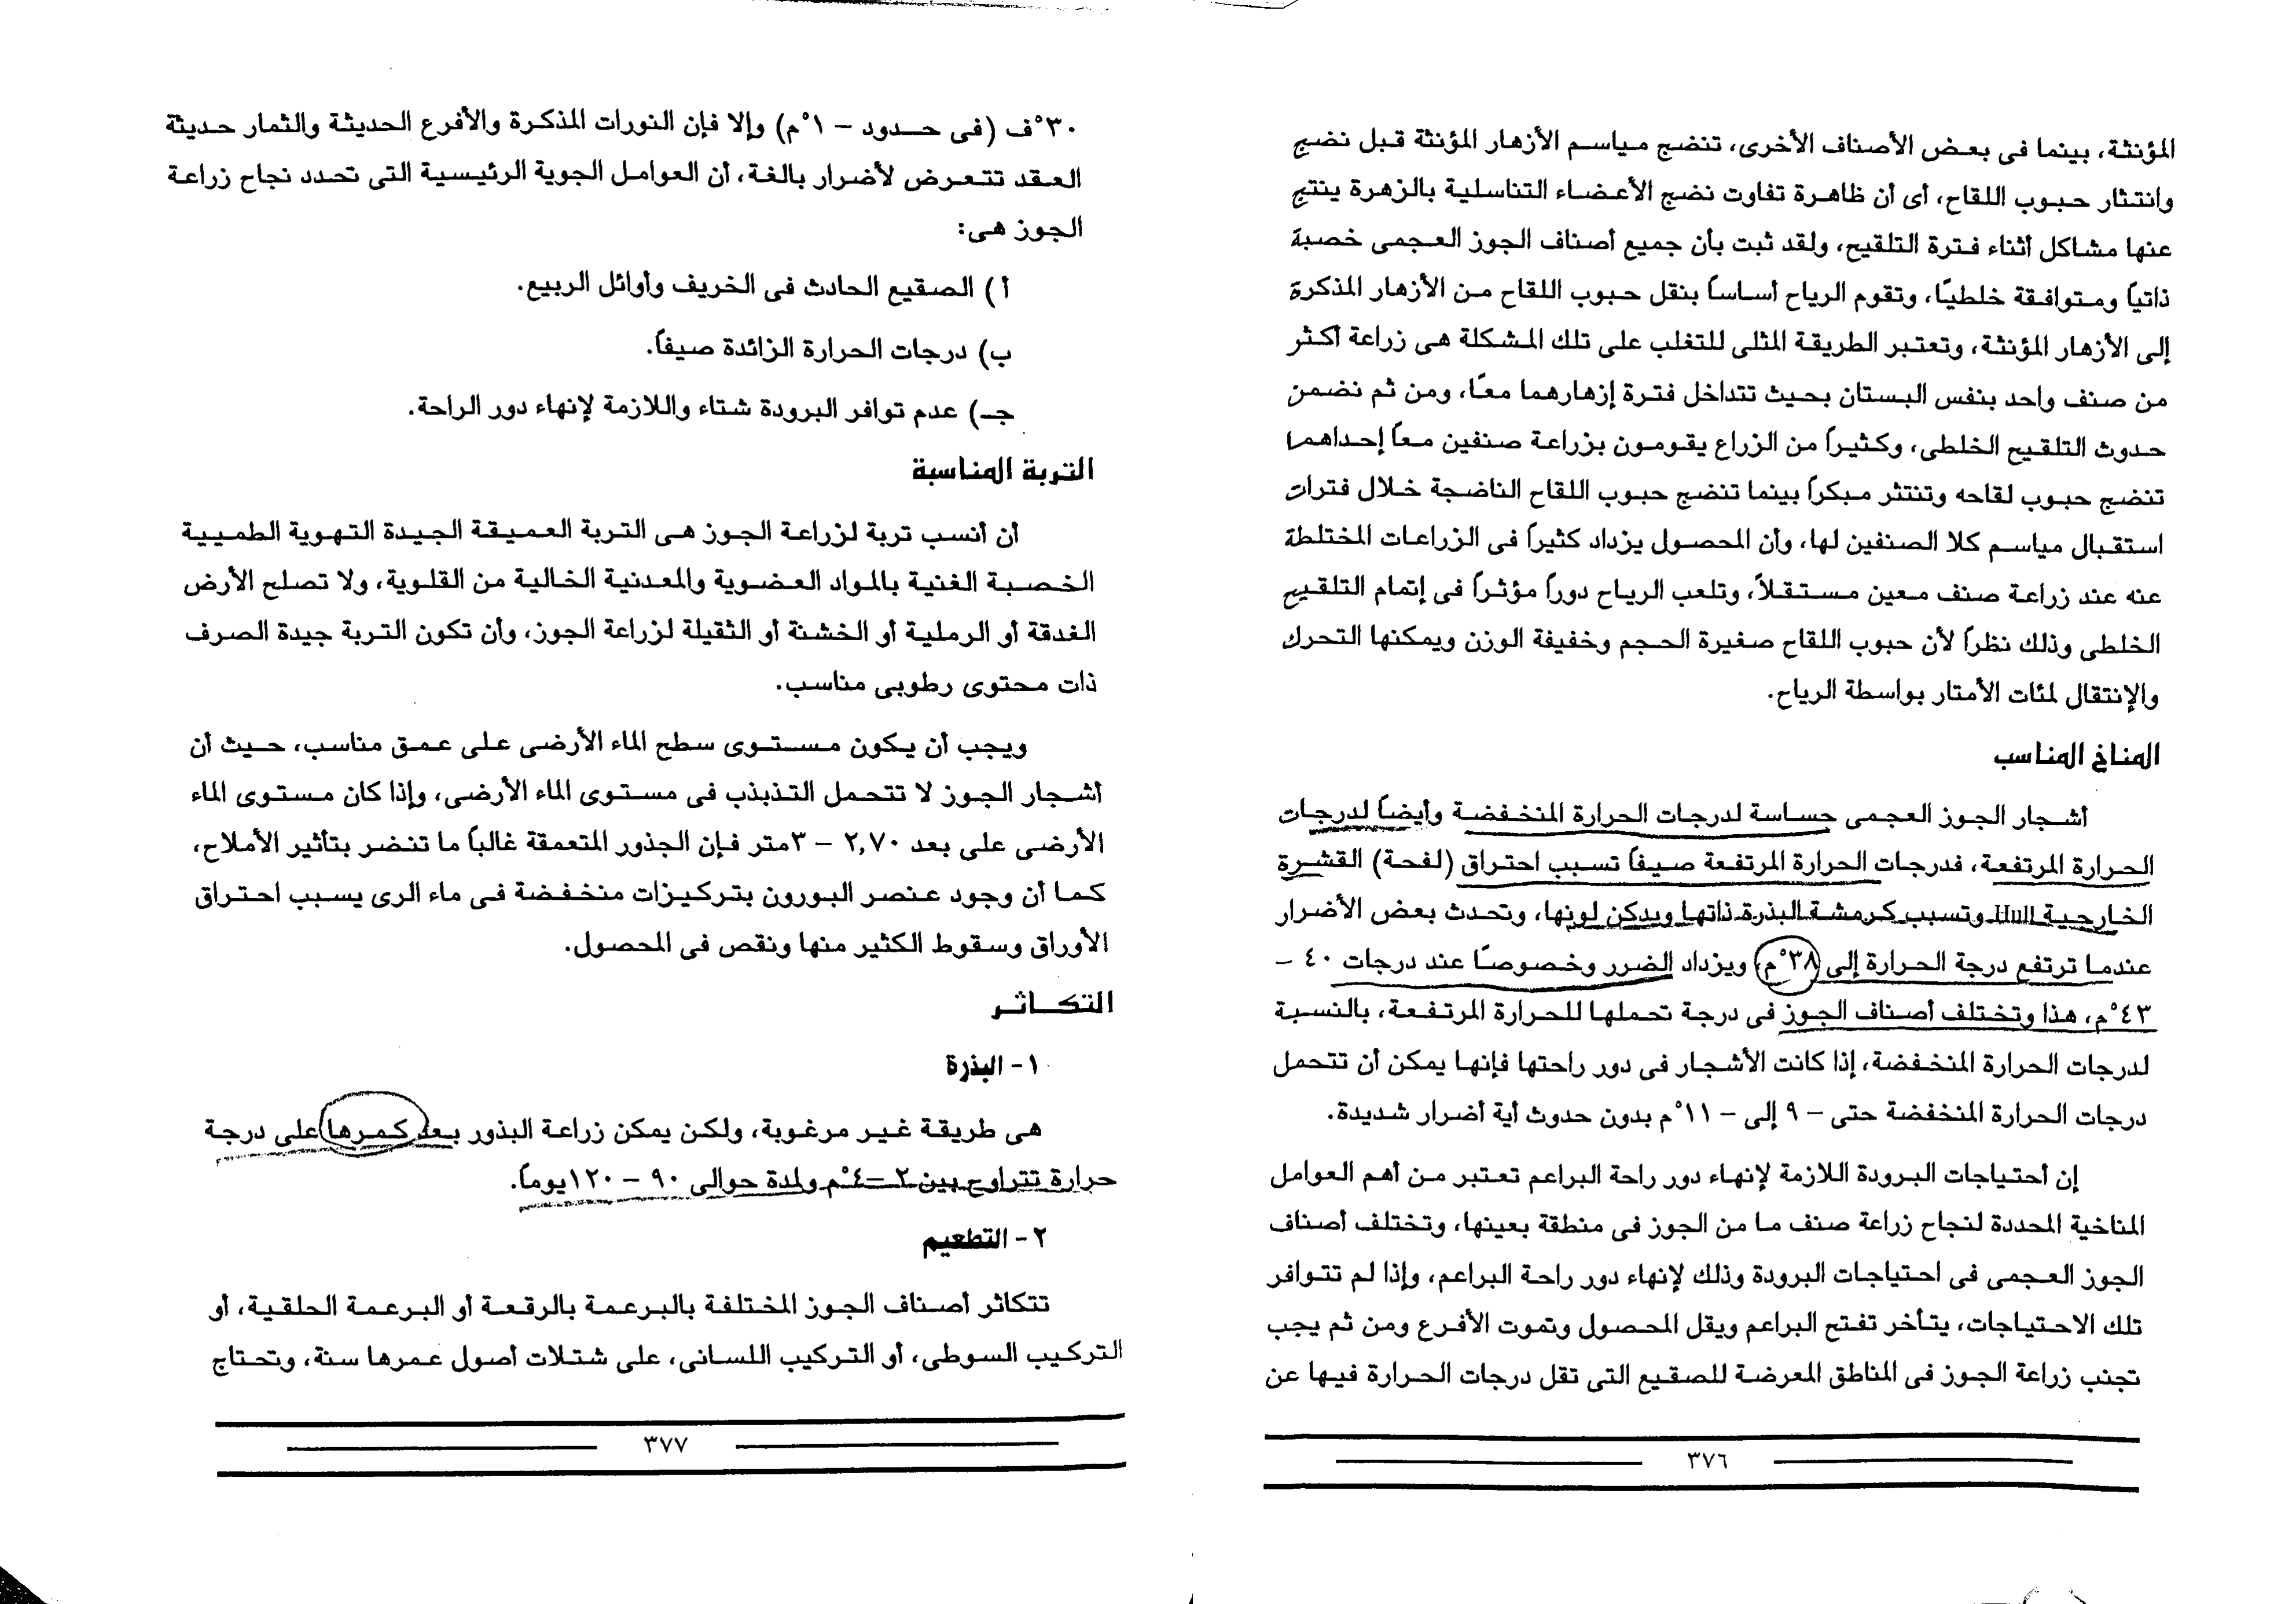 المؤنثة، بينما فى بعض الأصناف الأخرى، تنضج مياسم الأزهار المؤنثة قبل نضج
وانتثار حبوب اللقاح، أى أن ظاهرة تفاوت نضج الأعضاء التناسلية بالزهرة ينتج
عنها مشاكل أثناء فترة التلقيح، ولقد ثبت بأن جميع أصناف الجوز العجمى خصبة
ذاتياً ومتوافقة خلطيًا، وتقوم الرياح أساساً بنقل حبوب اللقاح من الأزهار المذكرة
إلى الأزهار المؤنثة، وتعتبر الطريقة المثلى للتغلب على تلك المشكلة هى زراعة أكثر
من صنف واحد بنفس البستان بحيث تتداخل فترة إزهارهما معًا، ومن ثم نضمن
حدوث التلقيح الخلطى، وكثيراً من الزراع يقومون بزراعة صنفين معاً إحداهما
تنضج حبوب لقاحه وتنتثر مبكراً بينما تنضج حبوب اللقاح الناضجة خلال فترات
استقبال مياسم كلا الصنفين لها، وأن المحصول يزداد كثيراً فى الزراعات المختلطة
عنه عند زراعة صنف معين مستقلاً، وتلعب الرياح دوراً مؤثراً فى إتمام التلقيح
الخلطى وذلك نظراً لأن حبوب اللقاح صغيرة الحجم وخفيفة الوزن ويمكنها التحرك
والإنتقال لمئات الأمتار بواسطة الرياح.
المناخ المناسب
أشجار الجوز العجمى حساسة لدرجات الحرارة المنخفضة وأيضاً لدرجات
الحرارة المرتفعة، فدرجات الحرارة المرتفعة صيفاً تسبب احتراق (لفحة) القشرة
الخارجية Hull وتسبب كرمشة البذرة ذاتها ويدكن لونها، وتحدث بعض الأضرار
عندما ترتفع درجة الحرارة إلى ٣٨°م، ويزداد الضرر وخصوصًا عند درجات ٤٠ –
٤٣°م، هذا وتختلف أصناف الجوز فى درجة تحملها للحرارة المرتفعة، بالنسبة
لدرجات الحرارة المنخفضة، إذا كانت الأشجار فى دور راحتها فإنها يمكن أن تتحمل
درجات الحرارة المنخفضة حتى – ٩ إلى – ١١°م بدون حدوث أية أضرار شديدة.
إن أحتياجات البرودة اللازمة لإنهاء دور راحة البراعم تعتبر من أهم العوامل
المناخية المحددة لنجاح زراعة صنف ما من الجوز فى منطقة بعينها، وتختلف أصناف
الجوز العجمى فى احتياجات البرودة وذلك لإنهاء دور راحة البراعم، وإذا لم تتوافر
تلك الاحتياجات، يتأخر تفتح البراعم ويقل المحصول وتموت الأفرع ومن ثم يجب
تجنب زراعة الجوز فى المناطق المعرضة للصقيع التى تقل درجات الحرارة فيها عن
٣٧٦
٣٠°ف (فى حدود – ١°م) وإلا فإن النورات المذكرة والأفرع الحديثة والثمار حديثة
العقد تتعرض لأضرار بالغة، أن العوامل الجوية الرئيسية التى تحدد نجاح زراعة
الجوز هى:
أ) الصقيع الحادث فى الخريف وأوائل الربيع.
ب) درجات الحرارة الزائدة صيفاً.
جـ) عدم توافر البرودة شتاء واللازمة لإنهاء دور الراحة.
التربة المناسبة
أن أنسب تربة لزراعة الجوز هى التربة العميقة الجيدة التهوية الطميية
الخصبة الغنية بالمواد العضوية والمعدنية الخالية من القلوية، ولا تصلح الأرض
الغدقة أو الرملية أو الخشنة أو الثقيلة لزراعة الجوز، وأن تكون التربة جيدة الصرف
ذات محتوى رطوبى مناسب.
ويجب أن يكون مستوى سطح الماء الأرضى على عمق مناسب، حيث أن
أشجار الجوز لا تتحمل التذبذب فى مستوى الماء الأرضى، وإذا كان مستوى الماء
الأرضى على بعد ٢,٧٠ – ٣متر فإن الجذور المتعمقة غالباً ما تنضر بتأثير الأملاح،
كما أن وجود عنصر البورون بتركيزات منخفضة فى ماء الرى يسبب احتراق
الأوراق وسقوط الكثير منها ونقص فى المحصول.
التكاثر
١- البذرة
هى طريقة غير مرغوبة، ولكن يمكن زراعة البذور بعد كمرها على درجة
حرارة تتراوح بين ٢ – ٤°م ولمدة حوالى ٩٠ – ١٢٠يوماً.
٢- التطعيم
تتكاثر أصناف الجوز المختلفة بالبرعمة بالرقعة أو البرعمة الحلقية، أو
التركيب السوطى، أو التركيب اللسانى، على شتلات أصول عمرها سنة، وتحتاج
٣٧٧